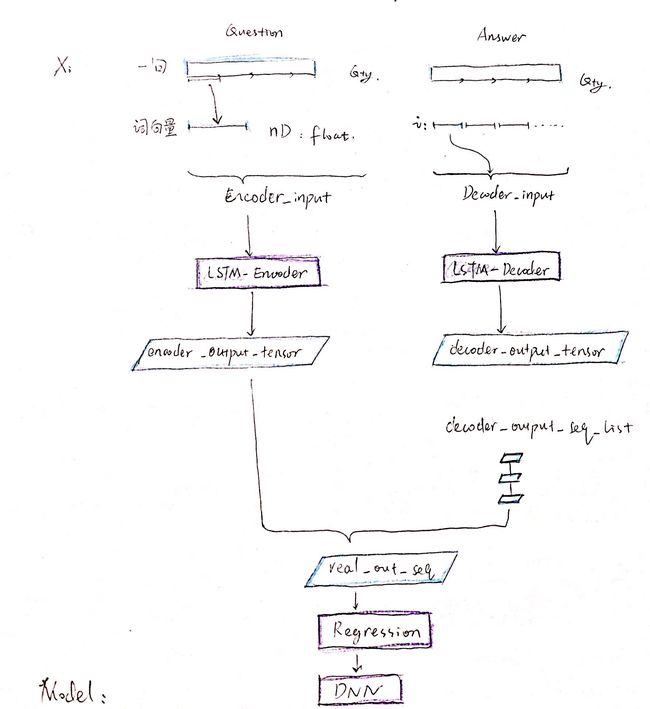 Question
Answer
Xi
一句
Qty.
Qty.
词向量
nD : float.
i:
Encoder_input
Decoder_input
LSTM-Encoder
LSTM-Decoder
encoder_output_tensor
decoder_output_tensor
decoder_output_seq_list
real_out_seq
Regression
DNN
Model: